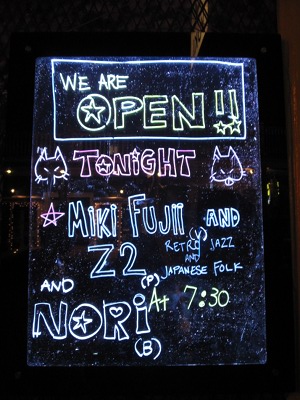 WE ARE
OPEN!!
TONIGHT
MIKI FUJII AND
(V)
RETRO JAZZ
AND
JAPANESE FOLK
Z2
(P)
AND
NORI At 7:30
(B)